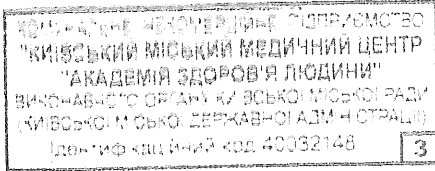 КОМУНАЛЬНЕ НЕКОМЕРЦІЙНЕ ПІДПРИЄМСТВО
"КИЇВСЬКИЙ МІСЬКИЙ МЕДИЧНИЙ ЦЕНТР
"АКАДЕМІЯ ЗДОРОВ'Я ЛЮДИНИ"
ВИКОНАВЧОГО ОРГАНУ КИЇВСЬКОЇ МІСЬКОЇ РАДИ
(КИЇВСЬКОЇ МІСЬКОЇ ДЕРЖАВНОЇ АДМІНІСТРАЦІЇ)
Ідентифікаційний код 40032148
3